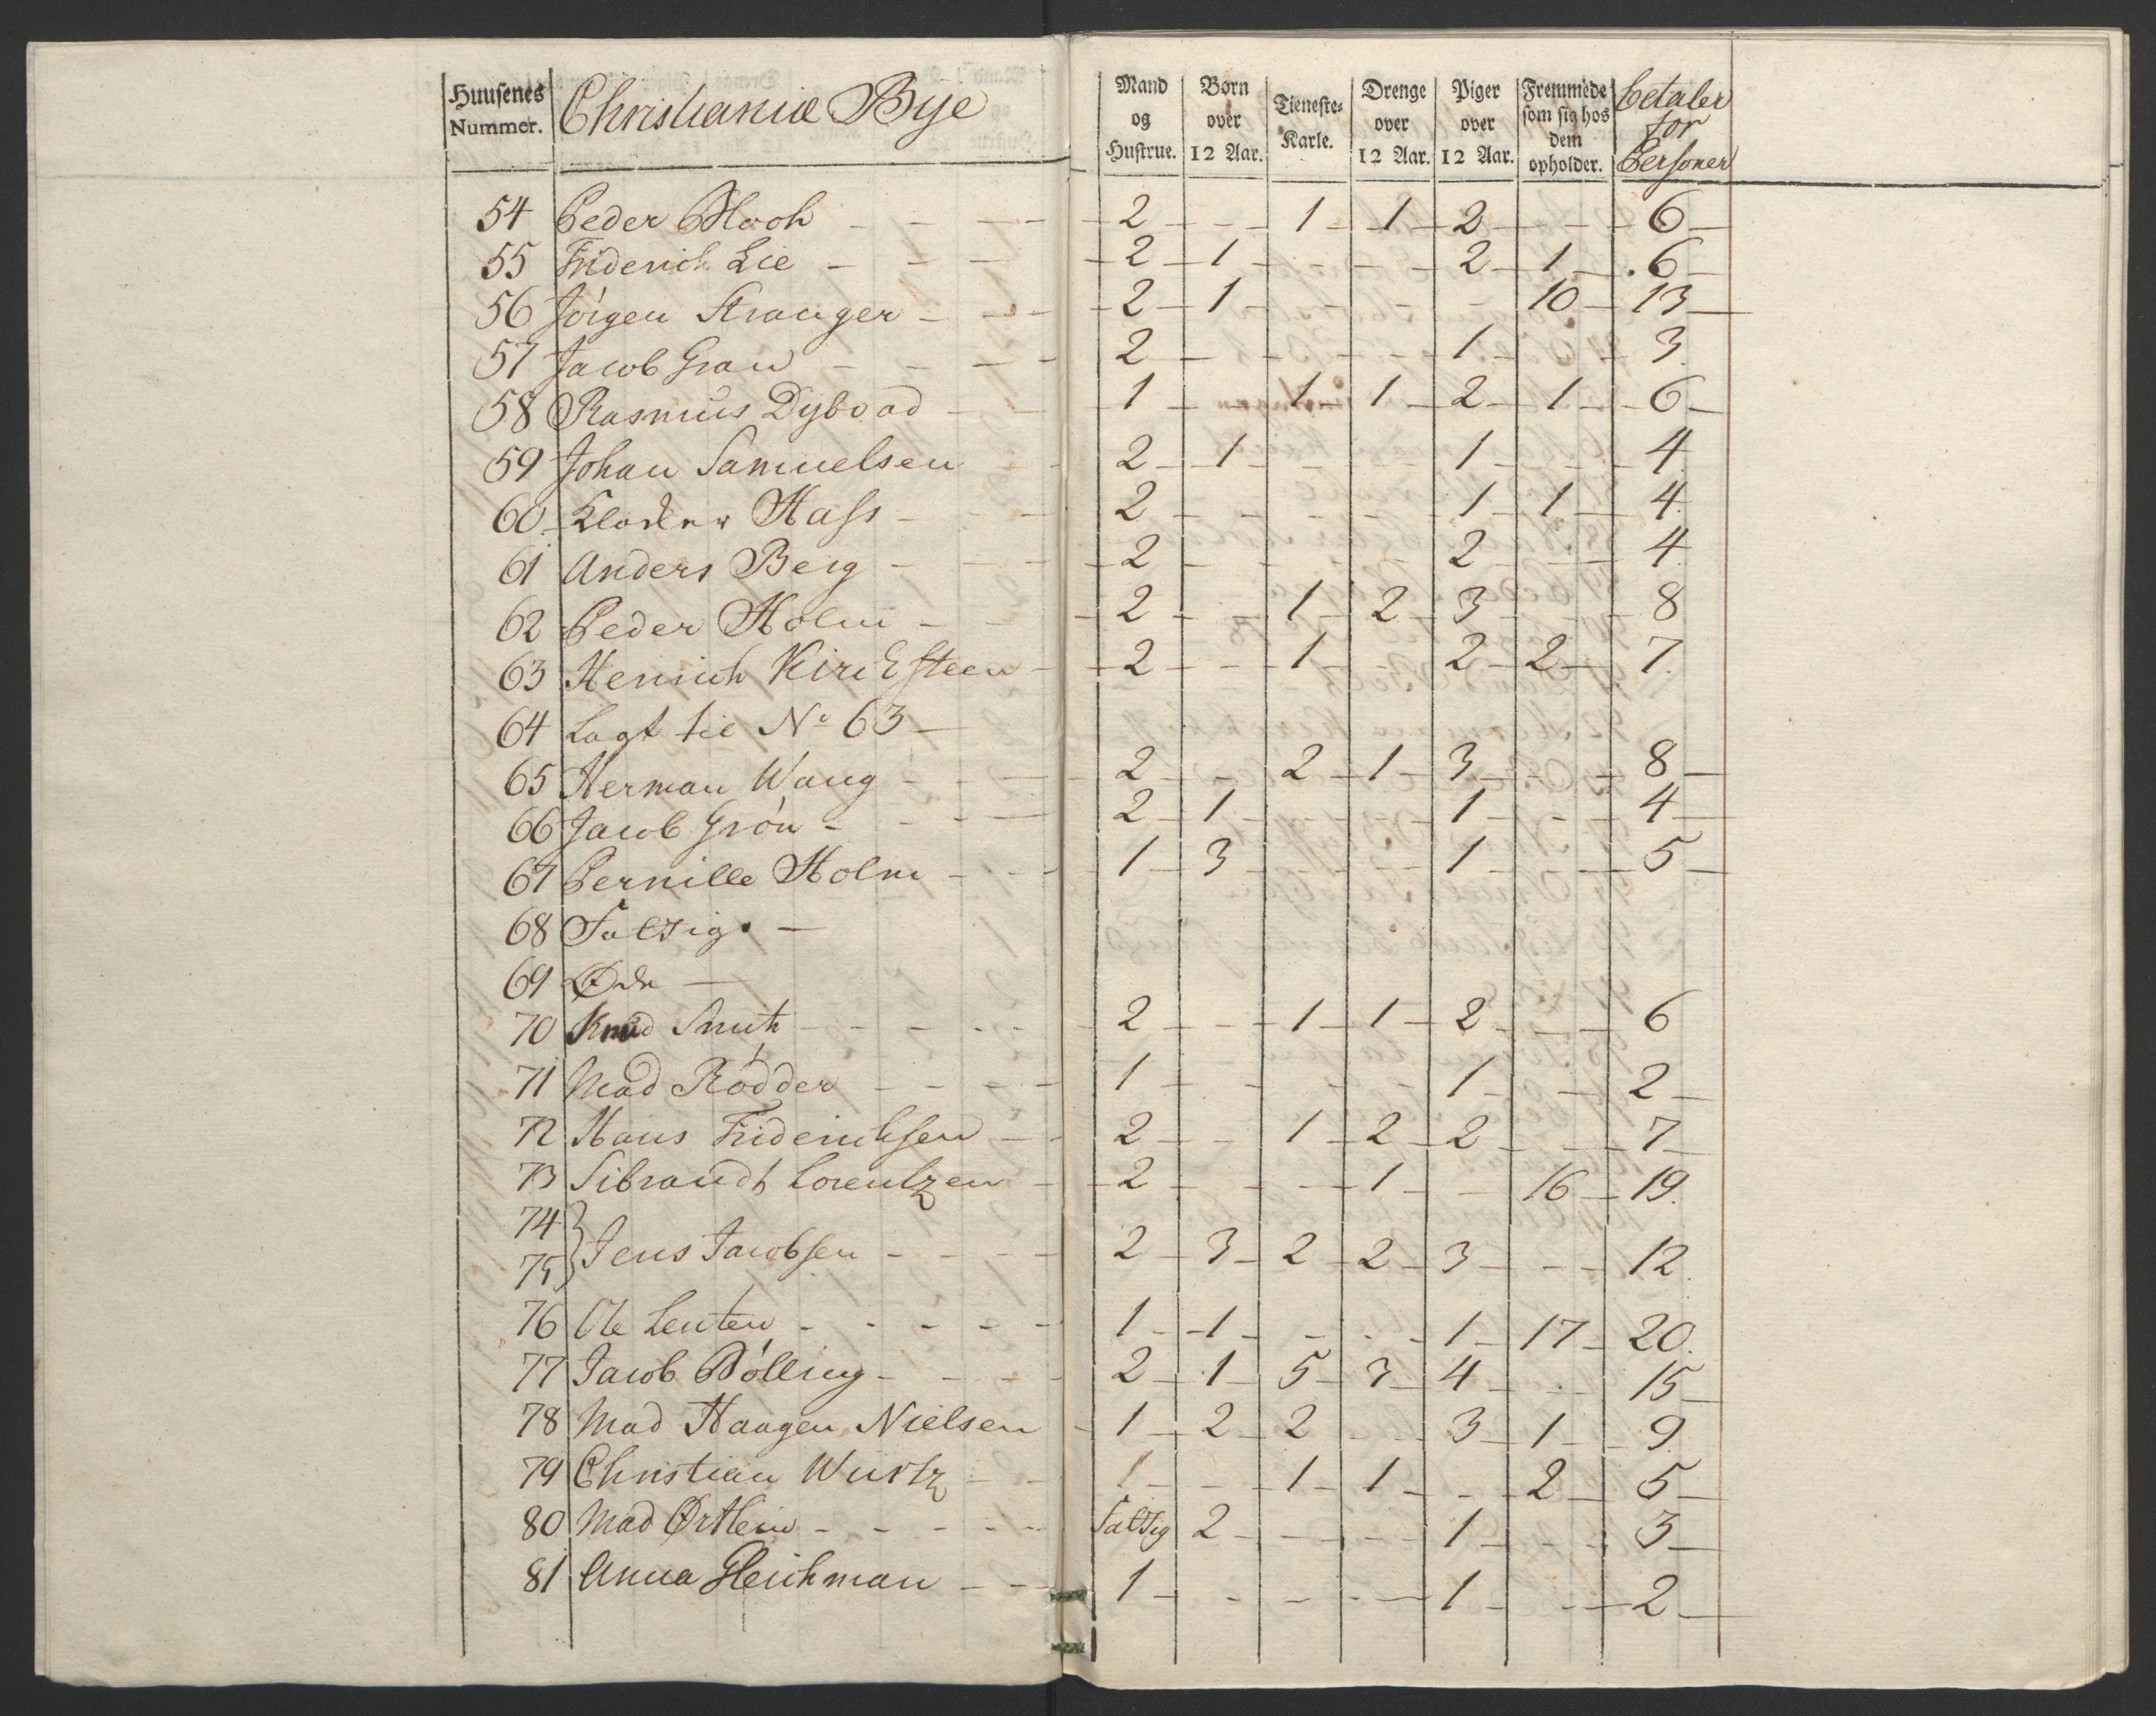 Huusenes Nummer. Christianiæ Bye Mand og Hustrue. Børn over 12 Aar. Tieneste-Karle. Drenge over 12 Aar. Piger over 12 Aar. Fremmede som sig hos dem opholder. betaler for Personer
54 Peder - - - 2 - - 1 - 1 - 2 - - - 6 -
55 Friderich Lie - - - 2 - 1 - - - - 2 - 1 - 6 -
56 Jørgen Stranger - - - 2 - 1 - - - - - 10 - 13 -
57 Jacob Grau - - - - 2 - - - - 1 - - 3
58 Rasmus Dybvad - - 1 - - 1 - 1 - 2 - 1 - 6 -
59 Johan Samuelsen - - 2 - 1 - - - 1 - - - 4
60 Hass - - - 2 - - - - 1 - 1 - 4
61 Anders Berg - - - 2 - - - - 2 - - - 4
62 Peder Holm - - 2 - - 1 - 2 - 3 - - - 8
63 Henrich Kircksteen - 2 - - 1 - - 2 - 2 - 7.
64 Lagt til No 63 -
65 Herman Wang - - - 2 - - 2 - 1 - 3 - - - 8 -
66 Jacob Grøn - - - - 2 - 1 - - - - 1 - - - 4 -
67 Pernille Holm - - - 1 - 3 - - - - 1 - - - 5 -
68 Fattig. -
69 Øde -
70 Knud Smith - - - - - 2 - - 1 - 1 - 2 - - - 6
71 Mad Rödder - - - - 1 - - - - - 1 - - - 2 -
72 Hans Friderichsen - - 2 - - 1 - 2 - 2 - - - 7 -
73 Sibrandt Lorentzen - - 2 - - - - 1 - - 16 - 19.
74
75 } Jens Jacobsen - - - - 2 - 3 - 2 - 2 - 3 - - - 12.
76 Ole Lenten - - - - - 1 - 1 - - - - 1 - 17 - 20.
77 Jacob Bölling - - - - 2 - 1 - 5 - 3 - 4 - - - 15 -
78 Mad Haagen Nielsen - 1 - 2 - 2 - - - 3 - 1 - - 9.
79 Christian Würtz - - 1 - - - 1 - 1 - - - 2 - 5 -
80 Mad - - - - - Fattig 2 - - - - - 1 - - - 3 -
81 Anna Heichman - - 1 - - - - - - 1 - - - 2 -